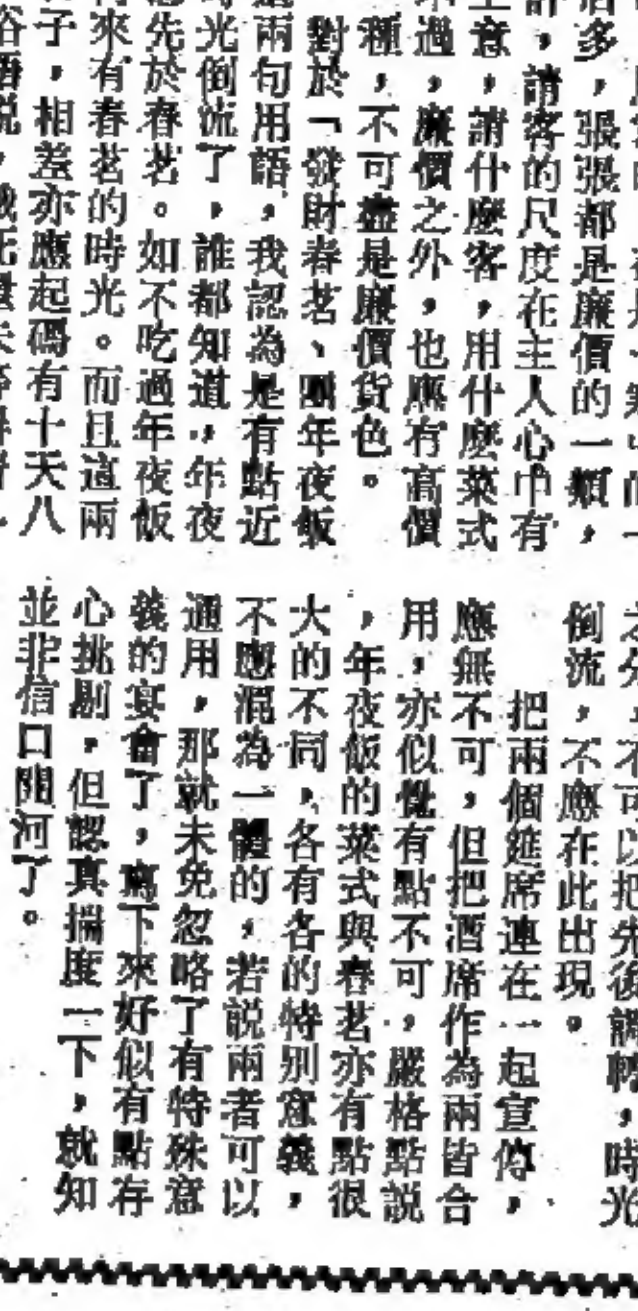 後多，張張都是廉價的一類，
，請客的尺度在主人心中有
主意，請什麼客，用什麼菜式
過，廉價之外，也應有高價
種，不可盡是廉價貨色。
對於「發財春茗、團年夜飯
兩句用語，我認為是有點近
光倒流了，誰都知道，年夜
先於春茗。如不吃過年夜飯
來有春茗的時光。而且這兩
子，相差亦應起碼有十天八
俗語說，
不可以把先後調轉，時光
倒流，不應在此出現。
把兩個筵席連在一起宣傳，
應無不可，但把酒席作為兩皆合
用，亦似覺有點不可，嚴格點說
，年夜飯的菜式與春茗亦有點很
大的不同，各有各的特別意義，
不應混為一體的，若說兩者可以
通用，那就未免忽略了有特殊意
義的宴會了，寫下來好似有點存
心挑剔，但認真揣度一下，就知
並非信口開河了。